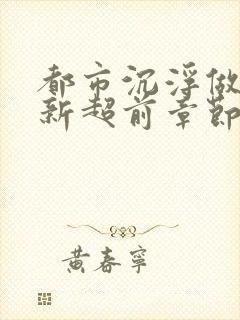 都市沉浮做
新超前章節
黃春寧